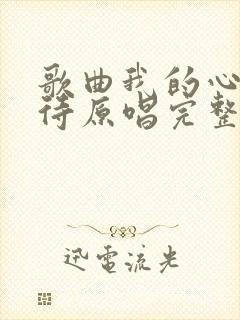 歌曲我的心
待原唱完整
迅電流光